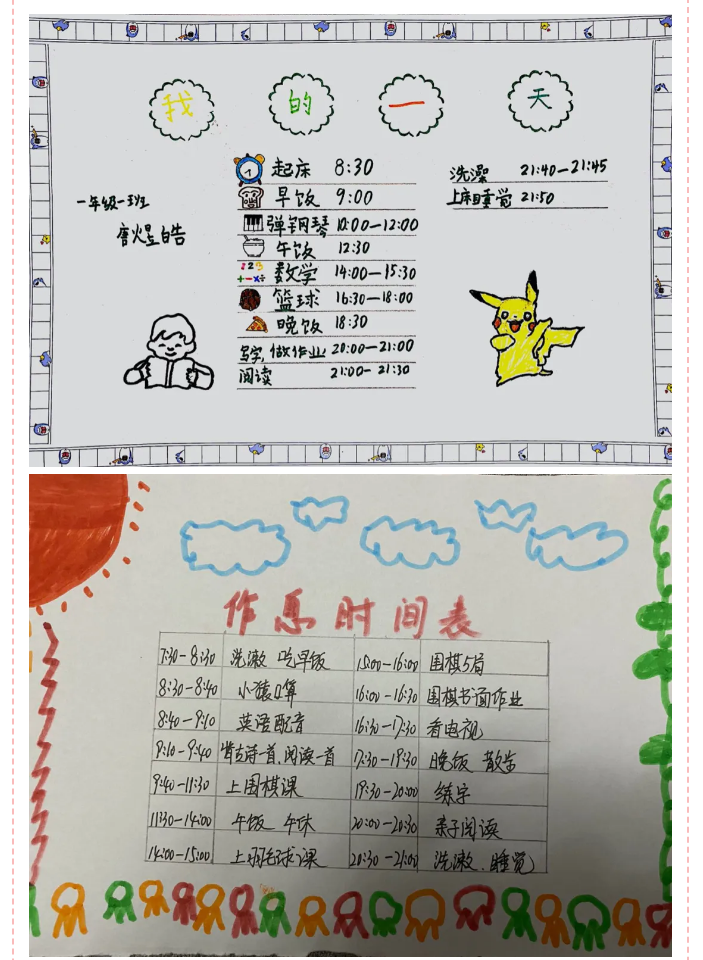 我的一天
一年级一班
唐煜皓
起床 8:30
早饭 9:00
弹钢琴 10:00—12:00
午饭 12:30
123
+-×÷
数学 14:00—15:30
篮球 16:30—18:00
晚饭 18:30
写字,做作业 20:00—21:00
阅读 21:00-21:30
洗澡 21:40—21:45
上床睡觉 21:50
作息时间表
7:30-8:30 洗漱 吃早饭
8:30-8:40 小猿口算
8:40-9:10 英语配音
9:10-9:40 背古诗一首,阅读一首
9:40-11:30 上围棋课
11:30-14:00 午饭 午休
14:00-15:00 上羽毛球课
15:00-16:00 围棋5局
16:00-16:30 围棋书面作业
16:30-17:30 看电视
17:30-19:30 晚饭 散步
19:30-20:00 练字
20:00-20:30 亲子阅读
20:30-21:00 洗漱、睡觉